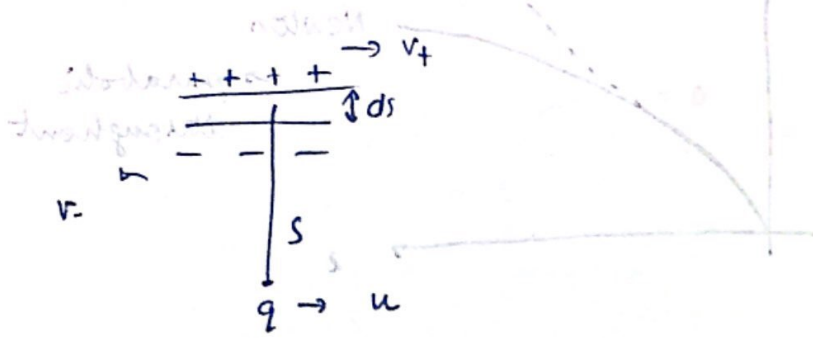 → v+
+ + + +
↕ ds
— — —
v-
s
q → u